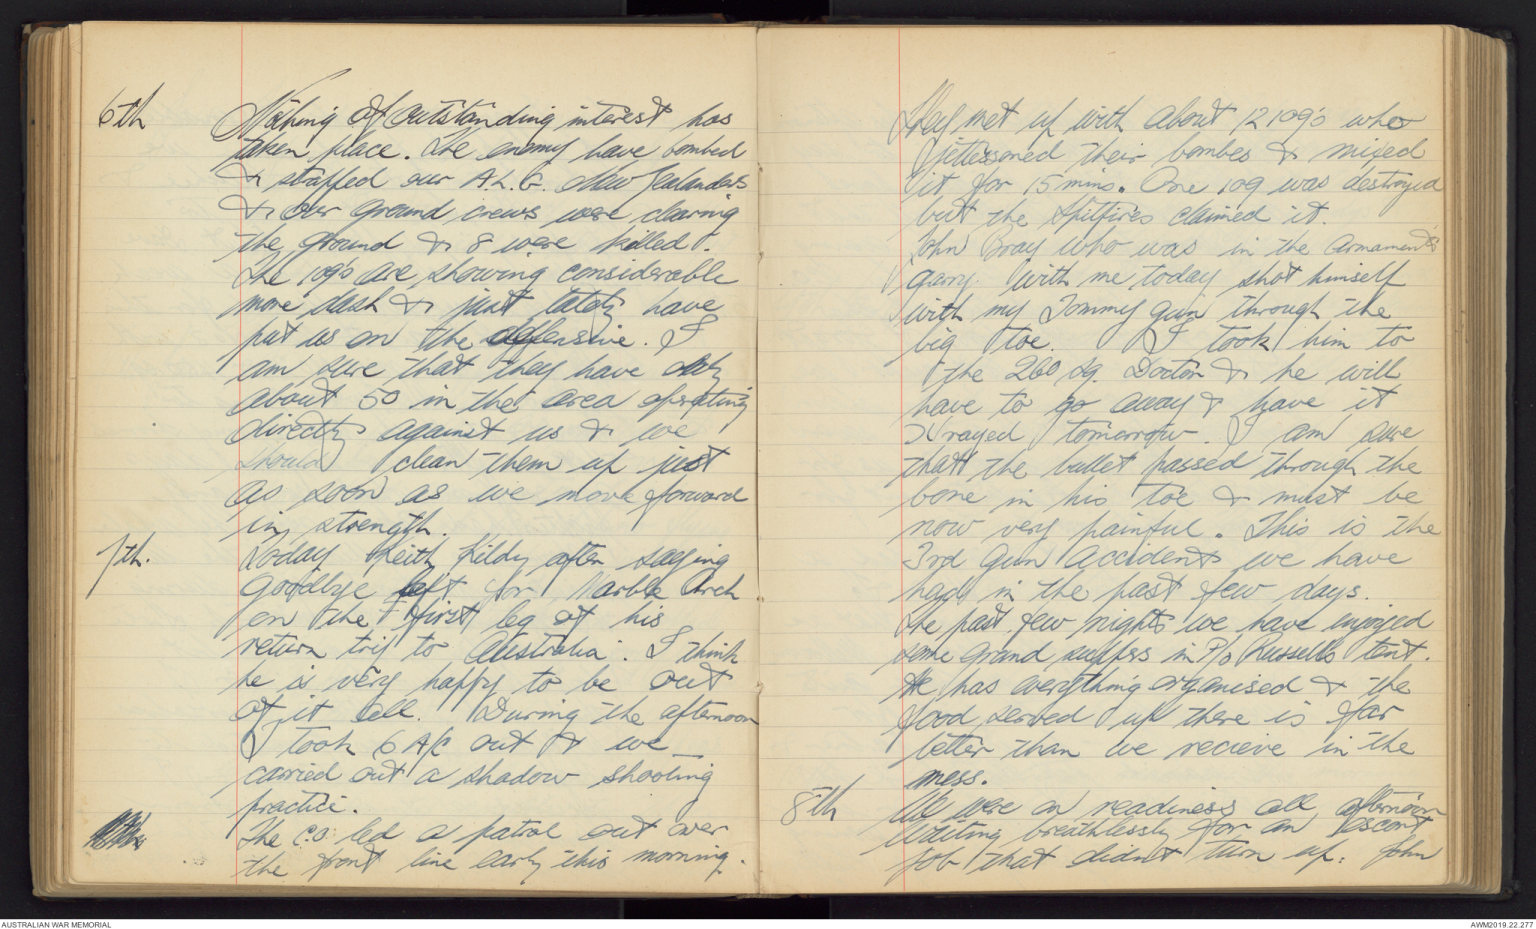 6th Nothing of outstanding interest has
taken place. The enemy have bombed
& straffed our A.L.G. New Zealanders
& our ground crews were clearing
the ground & 8 were killed.
The 109's are showing considerable
more dash & just lately have
put us on the defensive. I
am sure that they have only
about 50 in the area operating
directly against us & we
should clean them up just
as soon as we move forward
in strength.
7th. Today Keith Kildey after saying
goodbye left for Marble Arch
on the first leg of his
return trip to Australia. I think
he is very happy to be out
of it all. During the afternoon
I took 6 A/C out & we
carried out a shadow shooting
practice.
The C.O. led a patrol out over
the front line early this morning.
They met up with about 12 109's who
jettesoned their bombes & mixed
it for 15 mins. One 109 was destroyed
but the Spitfires claimed it.
John Bray who was in the Armaments
garry with me today shot himself
with my Tommy gun through the
big toe. I took him to
the 260 Sq. Doctor & he will
have to go away & have it
Xrayed tomorrow. I am sure
that the bullet passed through the
bone in his toe & must be
now very painful. This is the
3rd gun accident we have
had in the past few days.
The past few nights we have enjoyed
some grand suppers in P/O Russells tent.
He has everything organised & the
food served up there is far
better than we recieve in the
mess.
8th We were on readiness all afternoon
waiting breathlessly for an escort
job that didn't turn up. John
AUSTRALIAN WAR MEMORIAL
AWM2019.22.277